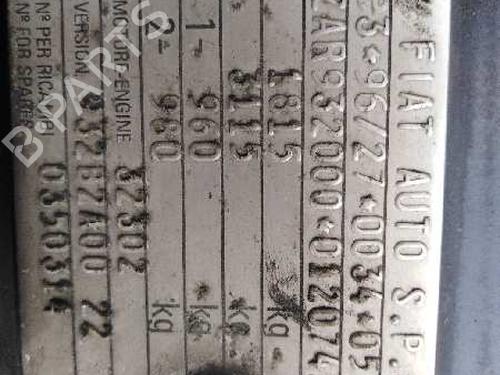 FIAT AUTO S.P.
3*96/27*0034*05
ZAR932000*012074
1815 kg
3115 kg
1- 960 kg
2- 960 kg
MOTORE-ENGINE 32302
VERSION. 932B2A00 22
Nº PER RICAMBI
Nº FOR SPARE 0350314
B-PARTS